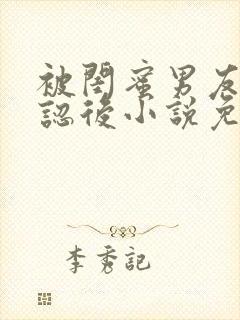 被閨蜜男友
認後小說免
李秀記